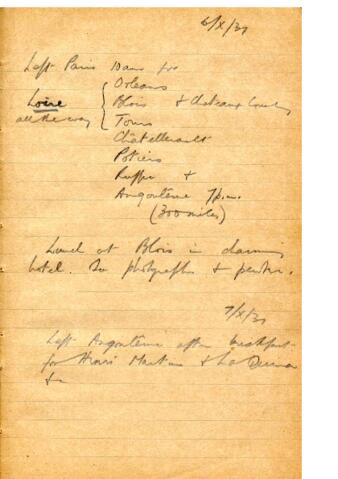 6/X/31
Left Paris 10am for
Orleans
Loire Blois & Chateaux Country
all the way Tours
Châtellerault
Poitiers
Ruffec &
Angoulême 7p.m.
(300 miles)
Lunch at Blois in charming
hotel. See photographs &
7/X/31
Left Angoulême after breakfast
for Henri Martin &